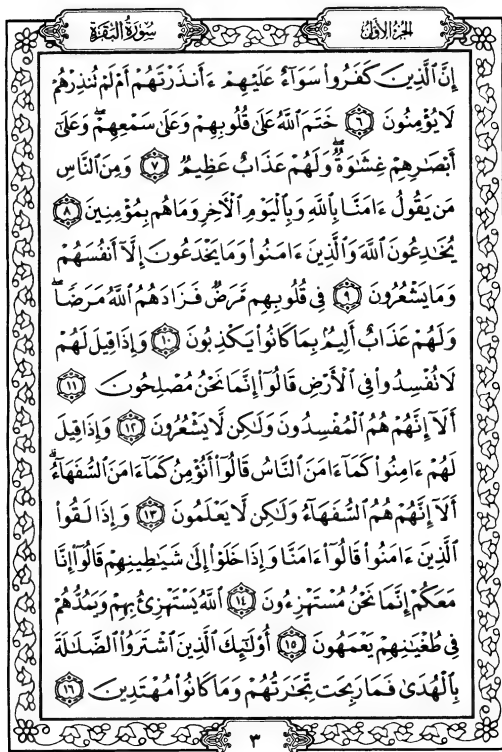 الجزء الأول
سورة البقرة
إِنَّ ٱلَّذِينَ كَفَرُوا۟ سَوَآءٌ عَلَيْهِمْ ءَأَنذَرْتَهُمْ أَمْ لَمْ تُنذِرْهُمْ
لَا يُؤْمِنُونَ ٦ خَتَمَ ٱللَّهُ عَلَىٰ قُلُوبِهِمْ وَعَلَىٰ سَمْعِهِمْ ۖ وَعَلَىٰٓ
أَبْصَٰرِهِمْ غِشَٰوَةٌ ۖ وَلَهُمْ عَذَابٌ عَظِيمٌ ٧ وَمِنَ ٱلنَّاسِ
مَن يَقُولُ ءَامَنَّا بِٱللَّهِ وَبِٱلْيَوْمِ ٱلْـَٔاخِرِ وَمَا هُم بِمُؤْمِنِينَ ٨
يُخَٰدِعُونَ ٱللَّهَ وَٱلَّذِينَ ءَامَنُوا۟ وَمَا يَخْدَعُونَ إِلَّآ أَنفُسَهُمْ
وَمَا يَشْعُرُونَ ٩ فِى قُلُوبِهِم مَّرَضٌ فَزَادَهُمُ ٱللَّهُ مَرَضًا ۖ
وَلَهُمْ عَذَابٌ أَلِيمٌۢ بِمَا كَانُوا۟ يَكْذِبُونَ ١٠ وَإِذَا قِيلَ لَهُمْ
لَا تُفْسِدُوا۟ فِى ٱلْأَرْضِ قَالُوٓا۟ إِنَّمَا نَحْنُ مُصْلِحُونَ ١١
أَلَآ إِنَّهُمْ هُمُ ٱلْمُفْسِدُونَ وَلَٰكِن لَّا يَشْعُرُونَ ١٢ وَإِذَا قِيلَ
لَهُمْ ءَامِنُوا۟ كَمَآ ءَامَنَ ٱلنَّاسُ قَالُوٓا۟ أَنُؤْمِنُ كَمَآ ءَامَنَ ٱلسُّفَهَآءُ ۗ
أَلَآ إِنَّهُمْ هُمُ ٱلسُّفَهَآءُ وَلَٰكِن لَّا يَعْلَمُونَ ١٣ وَإِذَا لَقُوا۟
ٱلَّذِينَ ءَامَنُوا۟ قَالُوٓا۟ ءَامَنَّا وَإِذَا خَلَوْا۟ إِلَىٰ شَيَٰطِينِهِمْ قَالُوٓا۟ إِنَّا
مَعَكُمْ إِنَّمَا نَحْنُ مُسْتَهْزِءُونَ ١٤ ٱللَّهُ يَسْتَهْزِئُ بِهِمْ وَيَمُدُّهُمْ
فِى طُغْيَٰنِهِمْ يَعْمَهُونَ ١٥ أُو۟لَٰٓئِكَ ٱلَّذِينَ ٱشْتَرَوُا۟ ٱلضَّلَٰلَةَ
بِٱلْهُدَىٰ فَمَا رَبِحَت تِّجَٰرَتُهُمْ وَمَا كَانُوا۟ مُهْتَدِينَ ١٦
٣